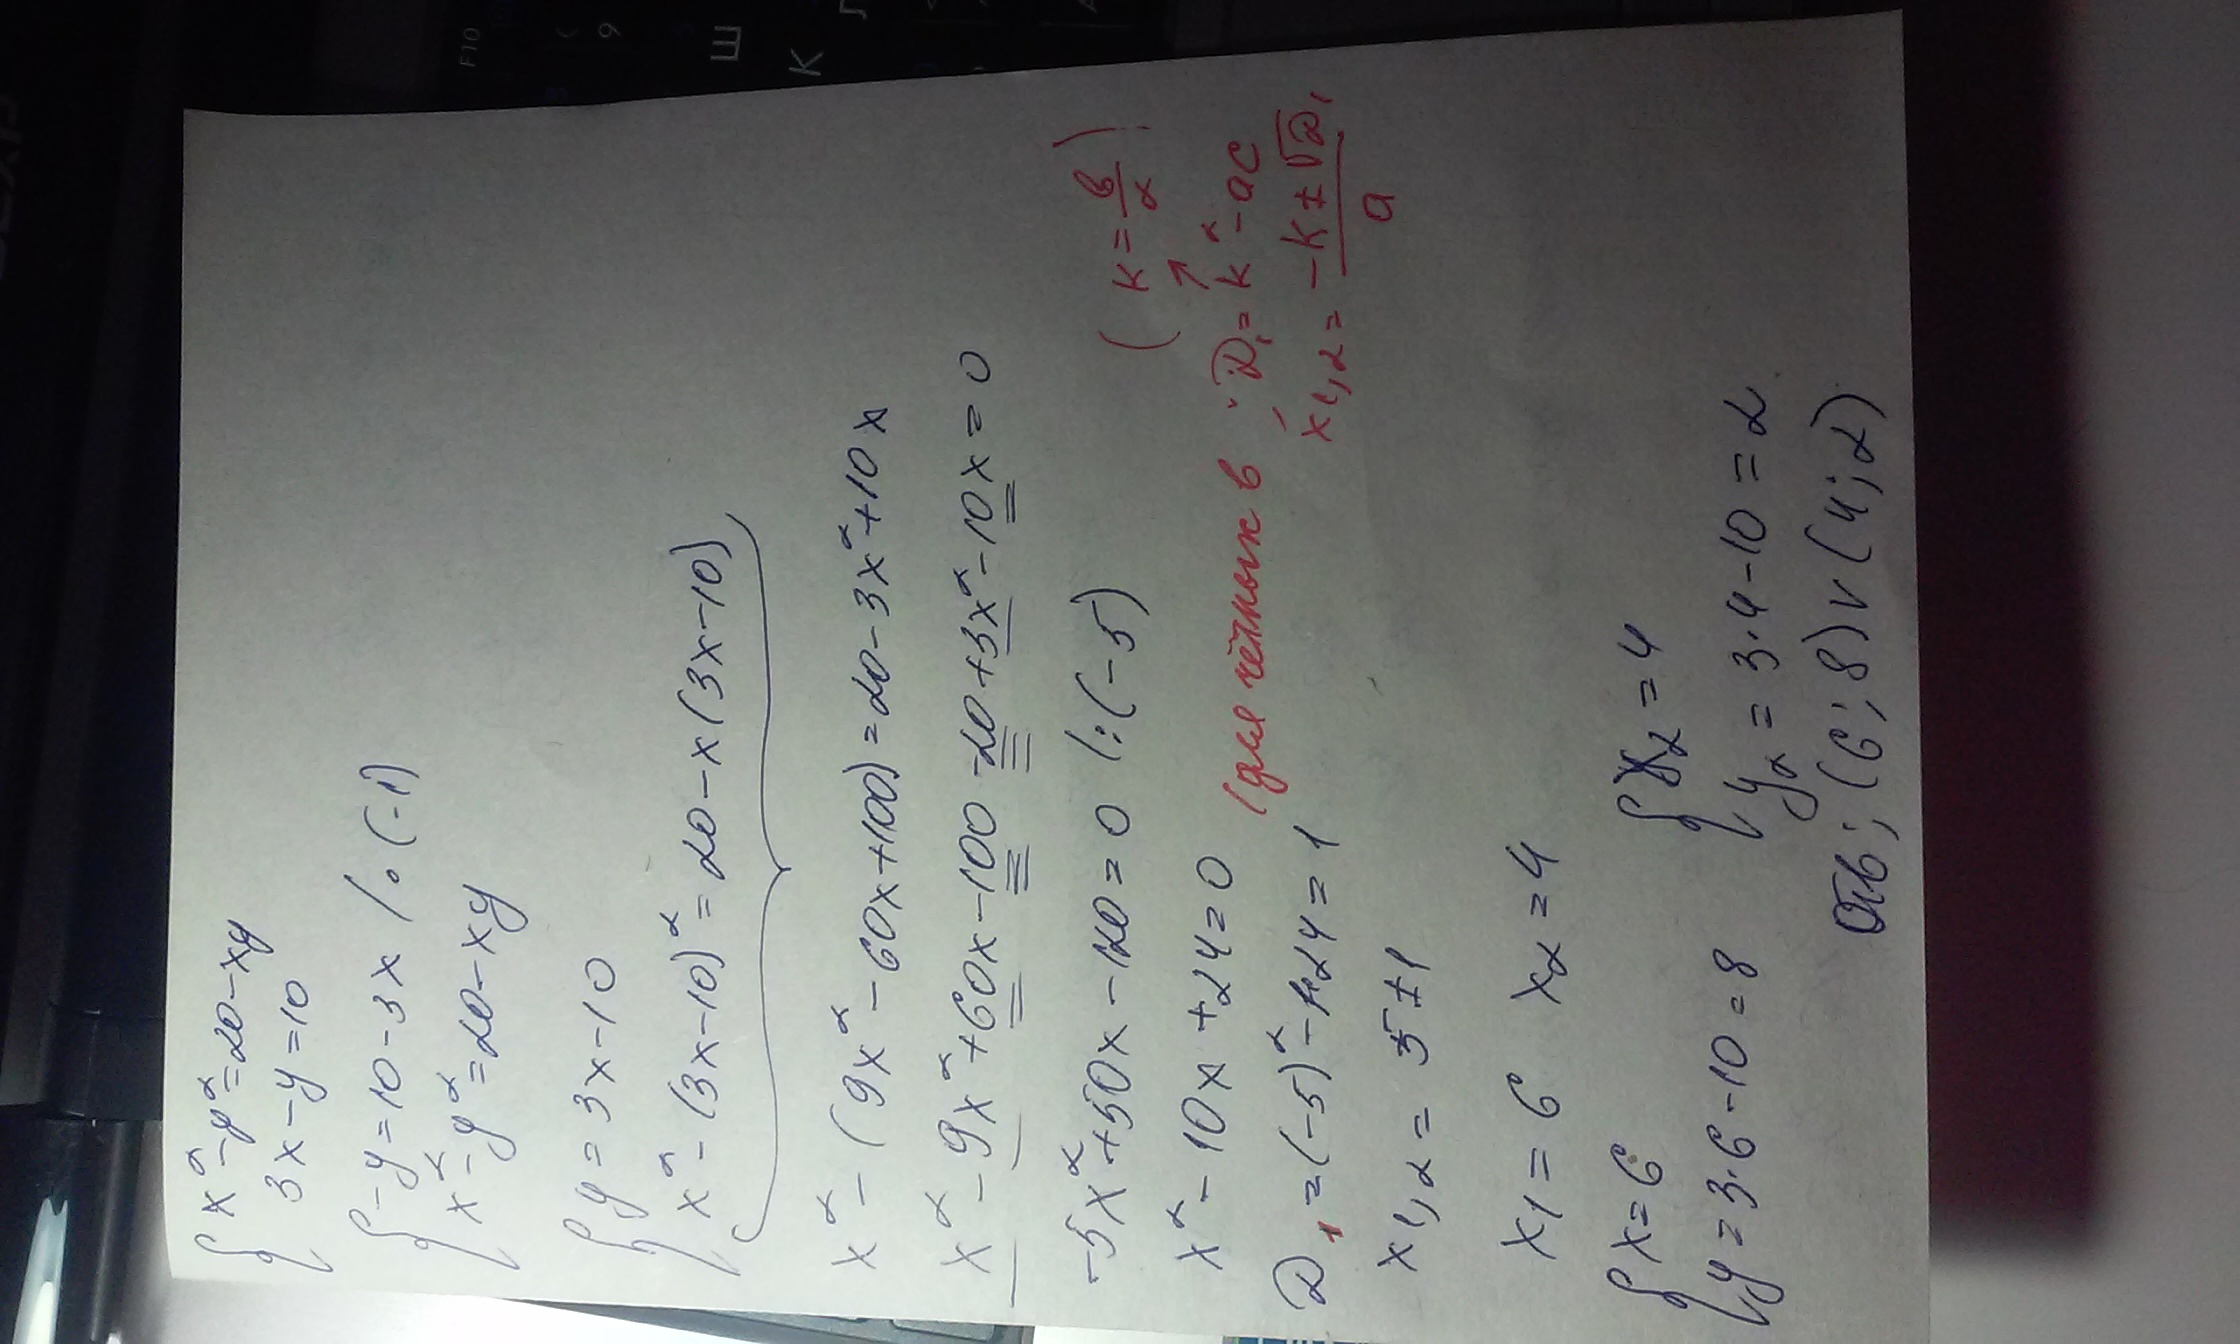 { x² - y² = 20 - xy
3x - y = 10
{ -y = 10 - 3x /·(-1)
x² - y² = 20 - xy
{ y = 3x - 10
x² - (3x - 10)² = 20 - x(3x - 10)
x² - (9x² - 60x + 100) = 20 - 3x² + 10x
x² - 9x² + 60x - 100 - 20 + 3x² - 10x = 0
-5x² + 50x - 120 = 0 /:(-5)
(k = в/2)!
x² - 10x + 24 = 0
(для чётных в: D₁ = k² - ac
D₁ = (-5)² - 1·24 = 1
x₁,₂ = (-k ± √D₁)/a
x₁,₂ = 5 ± 1
x₁ = 6 x₂ = 4
{ x = 6 { x₂ = 4
y = 3·6 - 10 = 8 y₂ = 3·4 - 10 = 2
Отв; (6; 8) v (4; 2)
F10
9
Ш
К